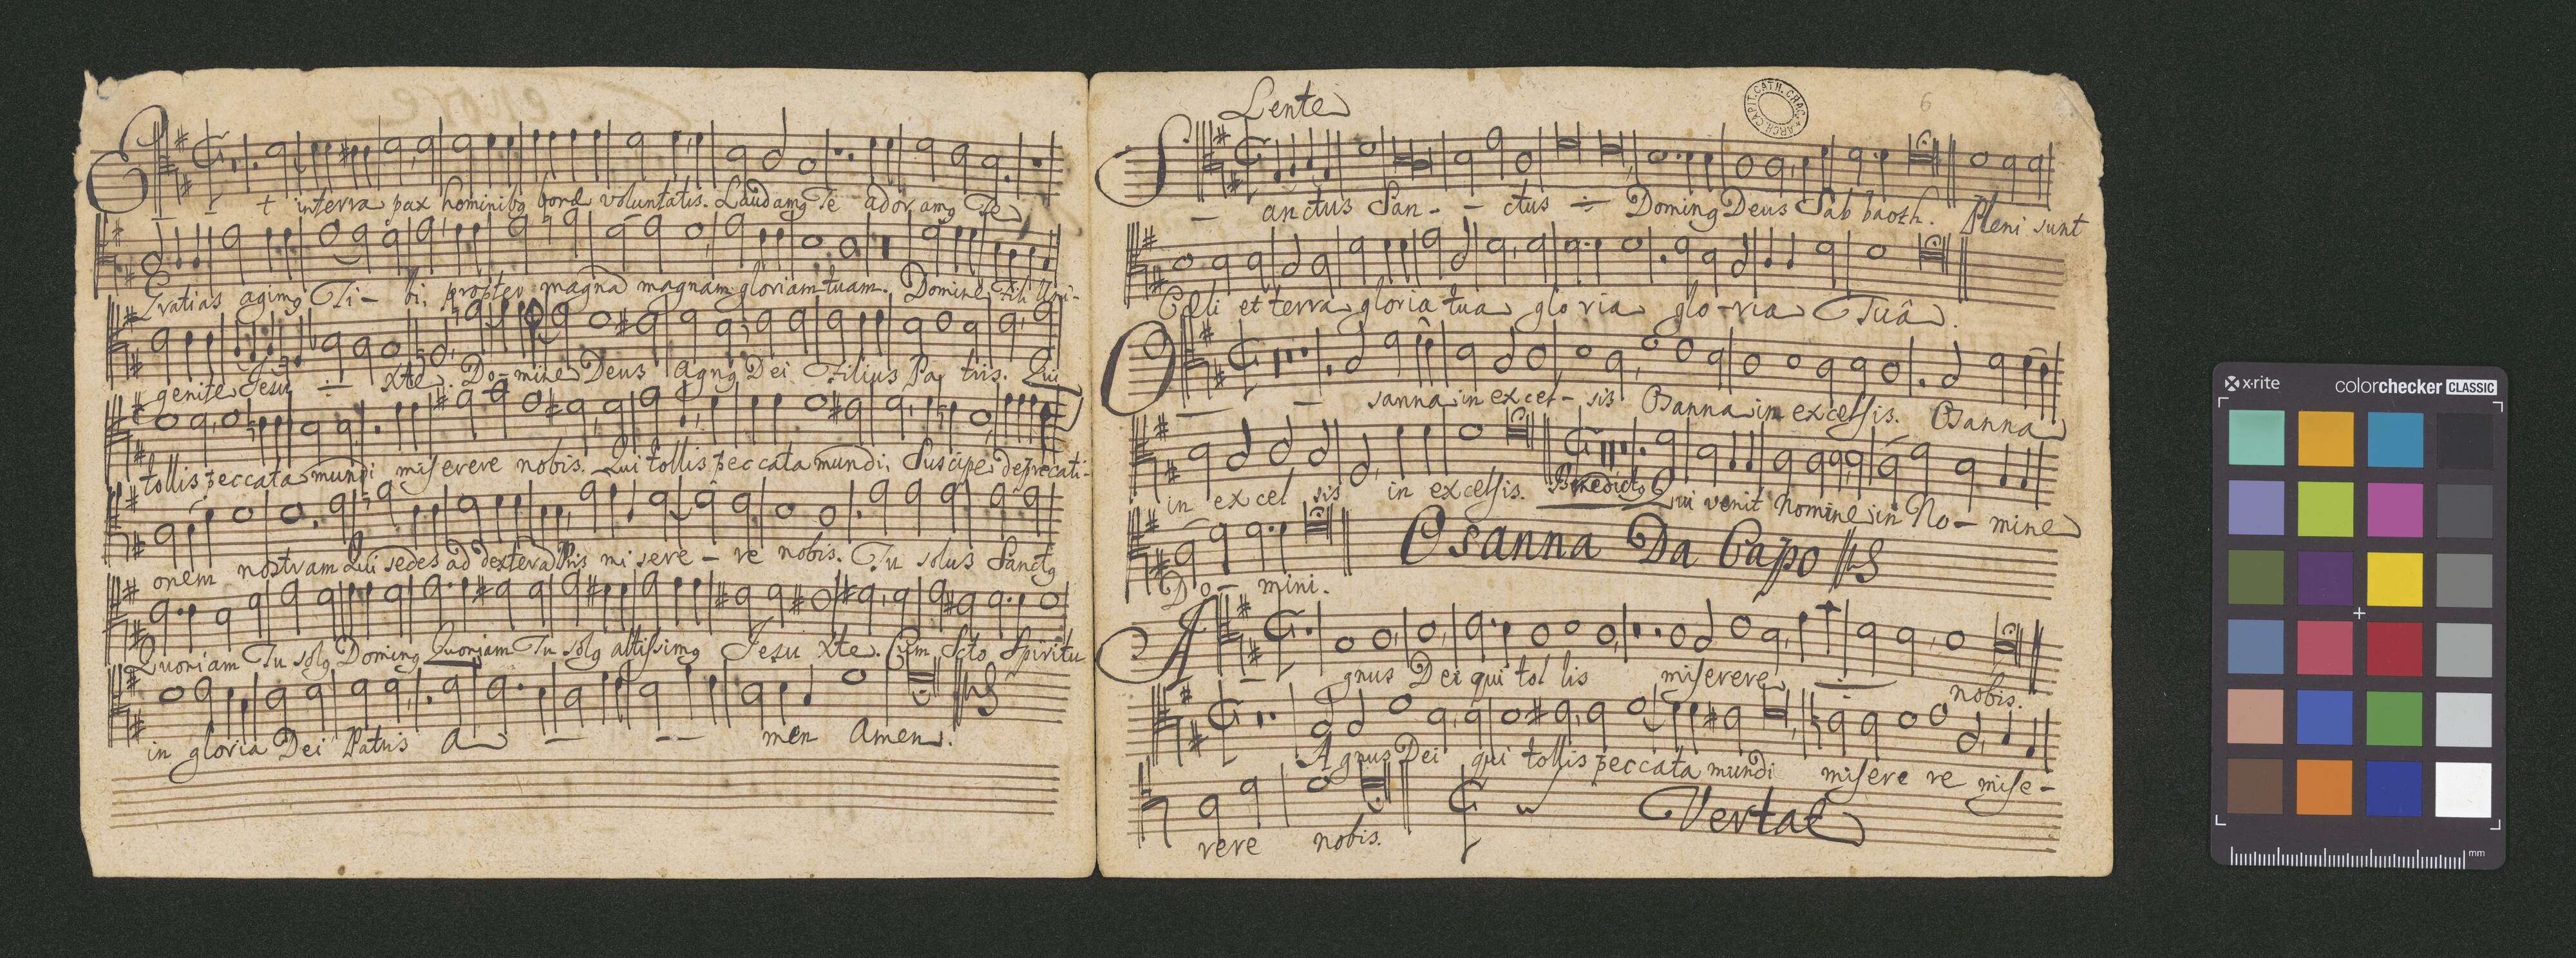 Et in terra pax hominibꝯ bonæ voluntatis. Laudamꝯ Te adoramꝯ Te
Gratias agimꝯ Ti- bi, propter magna magnam gloriam tuam. Domine Fili Uni-
genite Jesu ÷ xte. Do-mine Deus Agnꝯ Dei Filius Pa tris. Qui
tollis peccata mundi miserere nobis. Qui tollis peccata mundi, Suscipe deprecati-
onem nostram Qui sedes ad dextera Pris mi sere - re nobis. Tu solus Sanctꝯ
Quoniam Tu solꝯ Dominꝯ Quoniam Tu solꝯ altissimꝯ Jesu xte. Cum Scto Spiritu
in gloria Dei Patris A - - - men Amen.
6
ARCH. CAPIT. CATH. CRAC.
Lente
Sanctus San - - ctus ÷ Dominꝯ Deus Sab baoth. Pleni sunt
Cæli et terra gloria tua gloria glo-ria Tuâ.
O - - sanna in excel - sis Osanna in excelsis. Osanna
in excel sis in excelsis. Benedictꝯ Qui venit Nomine in No - mine
Do - mini. Osanna Da Capo
A - gnus Dei qui tol lis miserere ÷ nobis.
Agnus Dei qui tollis peccata mundi misere re mise-
rere nobis. Vertae
x·rite colorchecker CLASSIC
mm